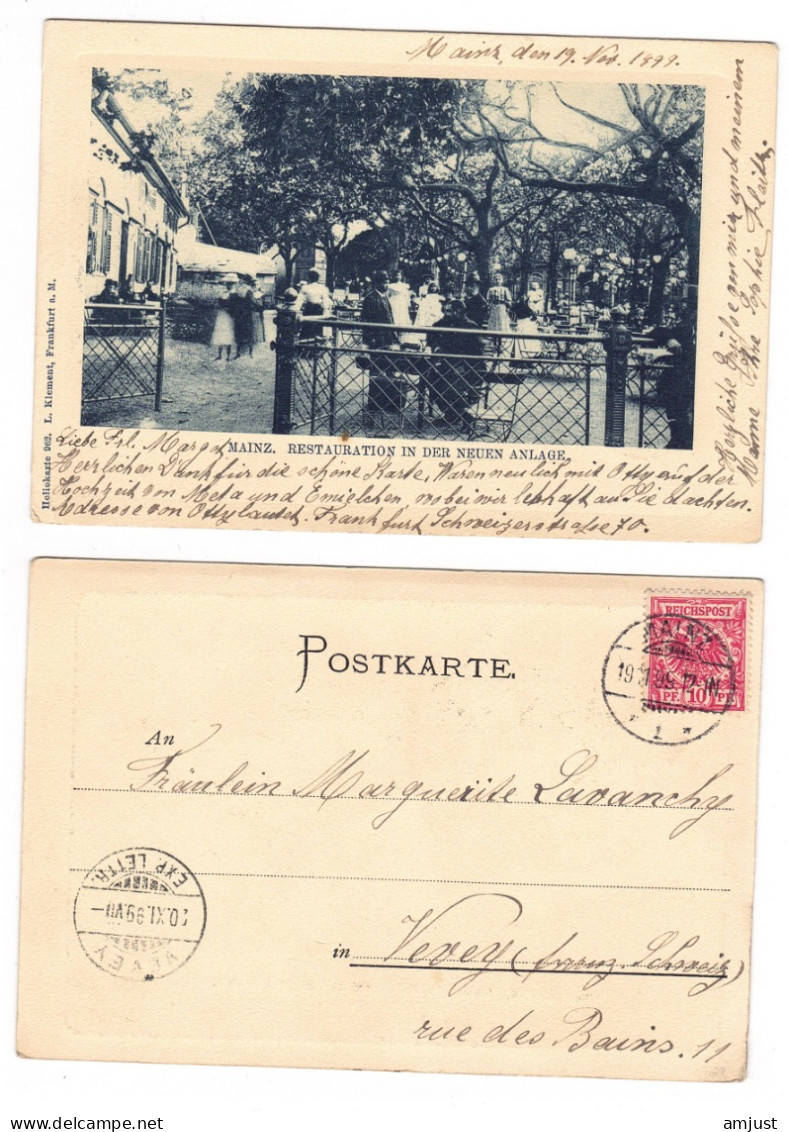 Mainz, den 19. Nov. 1899.
Herzliche Grüße von mir und meinem
Ihre Sophie
Heliokarte 962. L. Klement, Frankfurt a. M.
MAINZ. RESTAURATION IN DER NEUEN ANLAGE.
Liebe Frl. Margot
Herzlichen Dank für die schöne Karte, Waren neulich mit Otty auf der
Hochzeit von Meta und Emielchen, wobei wir lebhaft an Sie dachten.
Adresse von Otty lautet. Frankfurt Schweizerstraße 70.
POSTKARTE.
REICHSPOST
PF. 10 PF.
MAINZ
1
An
Fräulein Marguerite Lavanchy
EXP. LETTR.
20.XI.99.VII–
VEVEY
in Vevey (franz. Schweiz)
rue des Bains. 11
delcampe.net
amjust